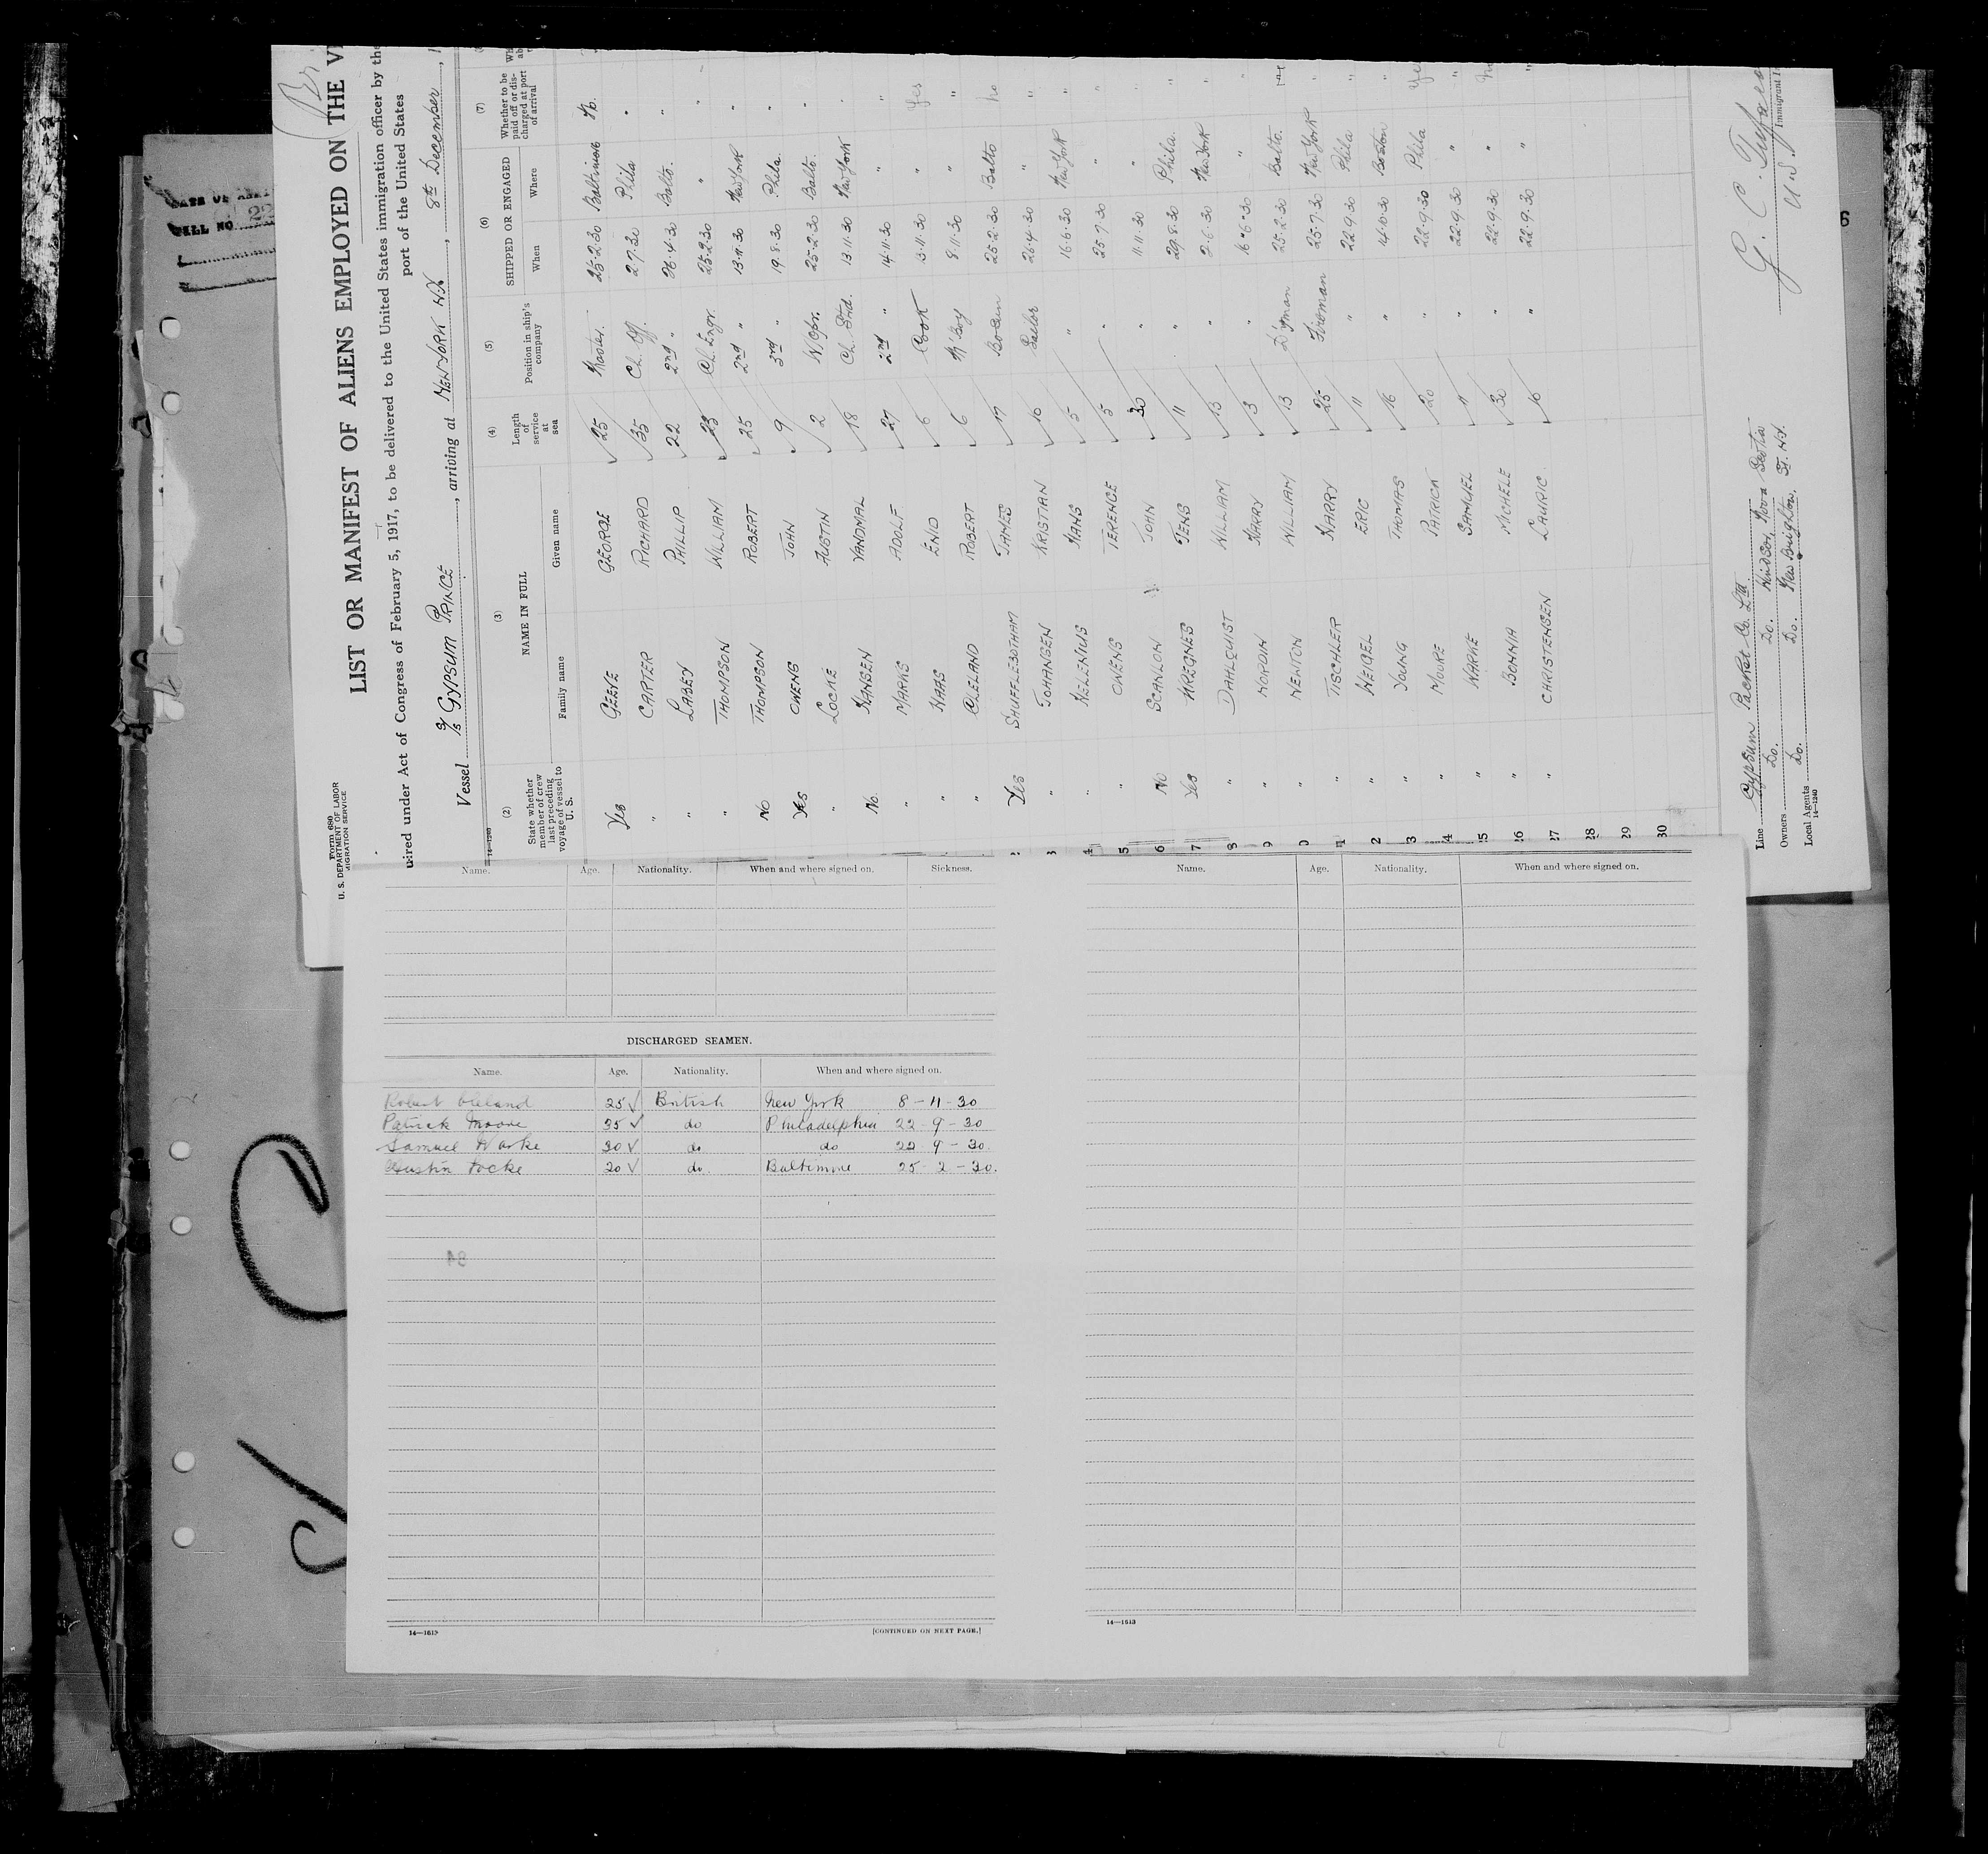 Form 680
U. S. DEPARTMENT OF LABOR
MIGRATION SERVICE
LIST OR MANIFEST OF ALIENS EMPLOYED ON THE
uired under Act of Congress of February 5, 1917, to be delivered to the United States immigration officer by the
port of the United States
Vessel S/S GYPSUM PRINCE, arriving at NEW YORK N.Y., 8th December,
14—1240
(2) (3) (4) (5) (6) (7)
State whether member of crew last preceding voyage of vessel to U. S. NAME IN FULL Length of service at sea Position in ship's company SHIPPED OR ENGAGED Whether to be paid off or discharged at port of arrival
Family name Given name When Where
Yes GEEVE GEORGE 25 Master 25·2·30 Baltimore No.
" CARTER RICHARD 35 Ch. Off. 2·7·30 Phila "
" LABEY PHILLIP 22 2nd " 26·4·30 Balto. "
" THOMPSON WILLIAM 23 Ch. Engr. 25·2·30 " "
No THOMPSON ROBERT 25 2nd " 13·11·30 New York "
Yes OWENS JOHN 9 3rd " 19·8·30 Phila. "
" LOCKE AUSTIN 2 W/Opr. 25·2·30 Balto. "
No. HANSEN 18 Ch. Std. 13·11·30 New York "
" MARKS ADOLF 27 2nd " 14·11·30 " "
" HAAS ENID 6 Cook 13·11·30 " Yes
" CLELAND ROBERT 6 M'Boy 8·11·30 " "
Yes SHUFFLEBOTHAM JAMES 17 Bo'sun 25·2·30 Balto No
" JOHANSEN KRISTIAN 10 Sailor 26·4·30 " "
" HELENIUS HANS 5 " 16·6·30 New York "
" OWENS TERENCE 5 " 25·7·30 " "
No SCANLON JOHN 30 " 11·11·30 " "
Yes KREGNES JENS 11 " 29·8·30 Phila. "
" DAHLQUIST WILLIAM 13 " 2·6·30 New York "
" NORDIN HARRY 3 " 16·6·30 " "
" NEWTON WILLIAM 13 D'yman 25·2·30 Balto.
" TISCHLER HARRY 25 Fireman 25·7·30 New York "
" WEIGEL ERIC 11 " 22·9·30 Phila "
" YOUNG THOMAS 16 " Boston "
" MOORE PATRICK 20 " 22·9·30 Phila Yes
" WARKE SAMUEL 11 " 22·9·30 " "
" BONNA MICHELE 30 " 22·9·30 " No
" CHRISTENSEN LAURIC 16 " 22·9·30 " "
28
29
30
Line Gypsum Packet Co. Ltd. Windsor, Nova Scotia
Owners Do. Do. Do.
Local Agents Do. Do. New Brighton, S.I. N.Y.
14—1240
Immigrant
Name. Age. Nationality. When and where signed on. Sickness.
DISCHARGED SEAMEN.
Name. Age. Nationality. When and where signed on.
Robert Cleland 25 British New York 8-11-30
Patrick Moore 35 do Philadelphia 22-9-30
Samuel Warke 30 do do 22 9-30.
Austin Locke 20 do. Baltimore 25-2-30.
14—1613
[CONTINUED ON NEXT PAGE.]
Name. Age. Nationality. When and where signed on.
14—1613
6